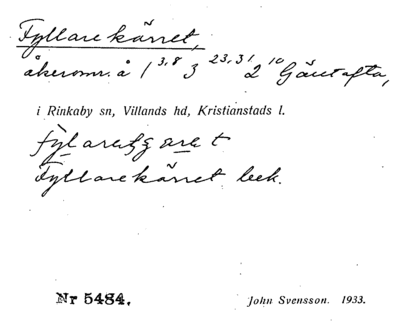 Fyllarekärret,
åkeromr. å 1 3,8 3 23,31 2 10 Gäustafta,
i Rinkaby sn, Villands hd, Kristianstads l.
Fyllarekärret bek.
Nr 5484.
John Svensson. 1933.